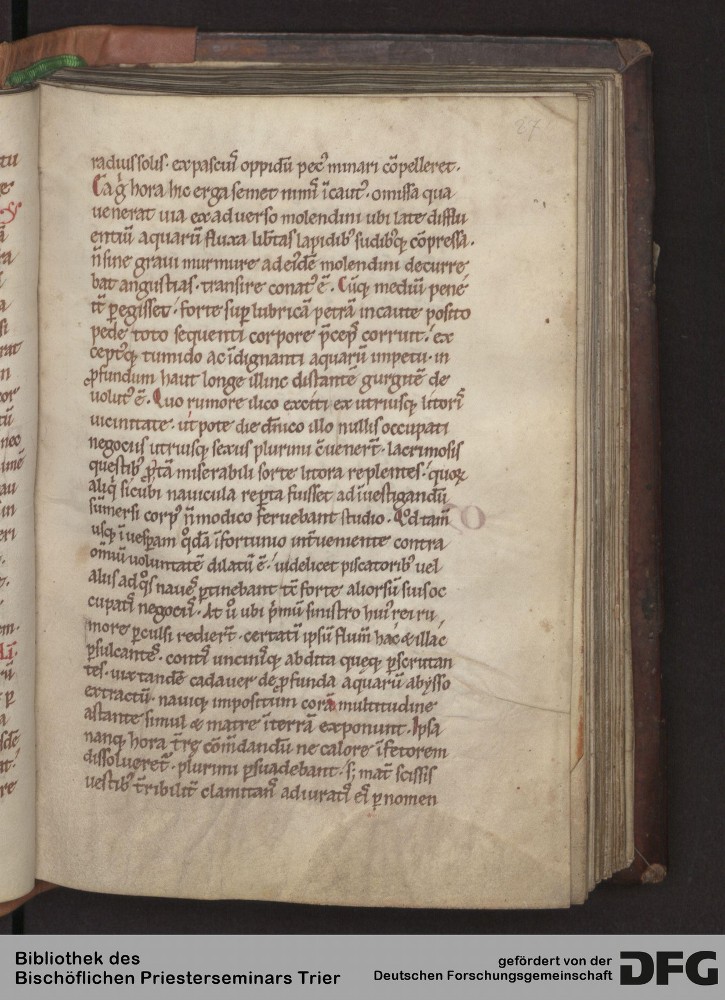 27
radius solis · ex pascuis oppidū pec' minari cōpelleret ·
Ea ḡ hora hic erga semet nimiū īcaut' · omissa qua
uenerat uia ex aduerso molendini ubi late difflu
entiū aquarū fluxa libtas lapidib' sudibq; cōpressa ·
n̄ sine graui murmure ad eidē molendini decurre
bat angustias · transire conat' ē · Cūq; mediū pene
iā pegisset · forte sup lubricā petrā incaute posito
pede toto sequenti corpore p̄ceps corruit · ex
ceptq; tumido ac īdignanti aquarū impetu · in
ꝓfundum haut longe illinc distantē gurgitē de
uolut' ē · Quo rumore ilico exciti ex utriusq; litoris
uicinitate · ut pote die dn̄ico illo nullis occupati
negociis utriusq; sexus plurimi cuenert̄ · lacrimosis
questib' ꝓ tā miserabili sorte litora replentes · quoꝝ
aliq̇ sicubi nauicula repta fuisset ad īuestigandū
sūmersi corp' n̄ modico feruebant studio · Qd̄ tam̄
usq; ī uespam q̇dā īfortunio int̄ueniente contra
om̄iū uoluntatē dilatū ē · uidelicet piscatorib' uel
aliis ad q̇s naues ptinebant tc̄ forte aliorsū suis oc
cupatis negociis · At ū ubi p̄mū sinistro hui' rei ru
more pculsi rediert̄ · certatī ipsū flum̄ hac & illac
psulcantes · contis uncinisq; abdita queq; pscrutan
tes · uix tandē cadauer de ꝓfunda aquarū abysso
extractū · nauiq; impositum corā multitudine
astante simul & matre ī terrā exponunt · Ipsa
nanq; hora t̄re cōm̄dandū ne calore ī fetorem
dissolueret̄ · plurimi psuadebant · s; mat̄ scissis
uestib' t̄ribilit̄ clamitans adiurat' eis p nomen
Bibliothek des
Bischöflichen Priesterseminars Trier
gefördert von der
Deutschen Forschungsgemeinschaft
DFG